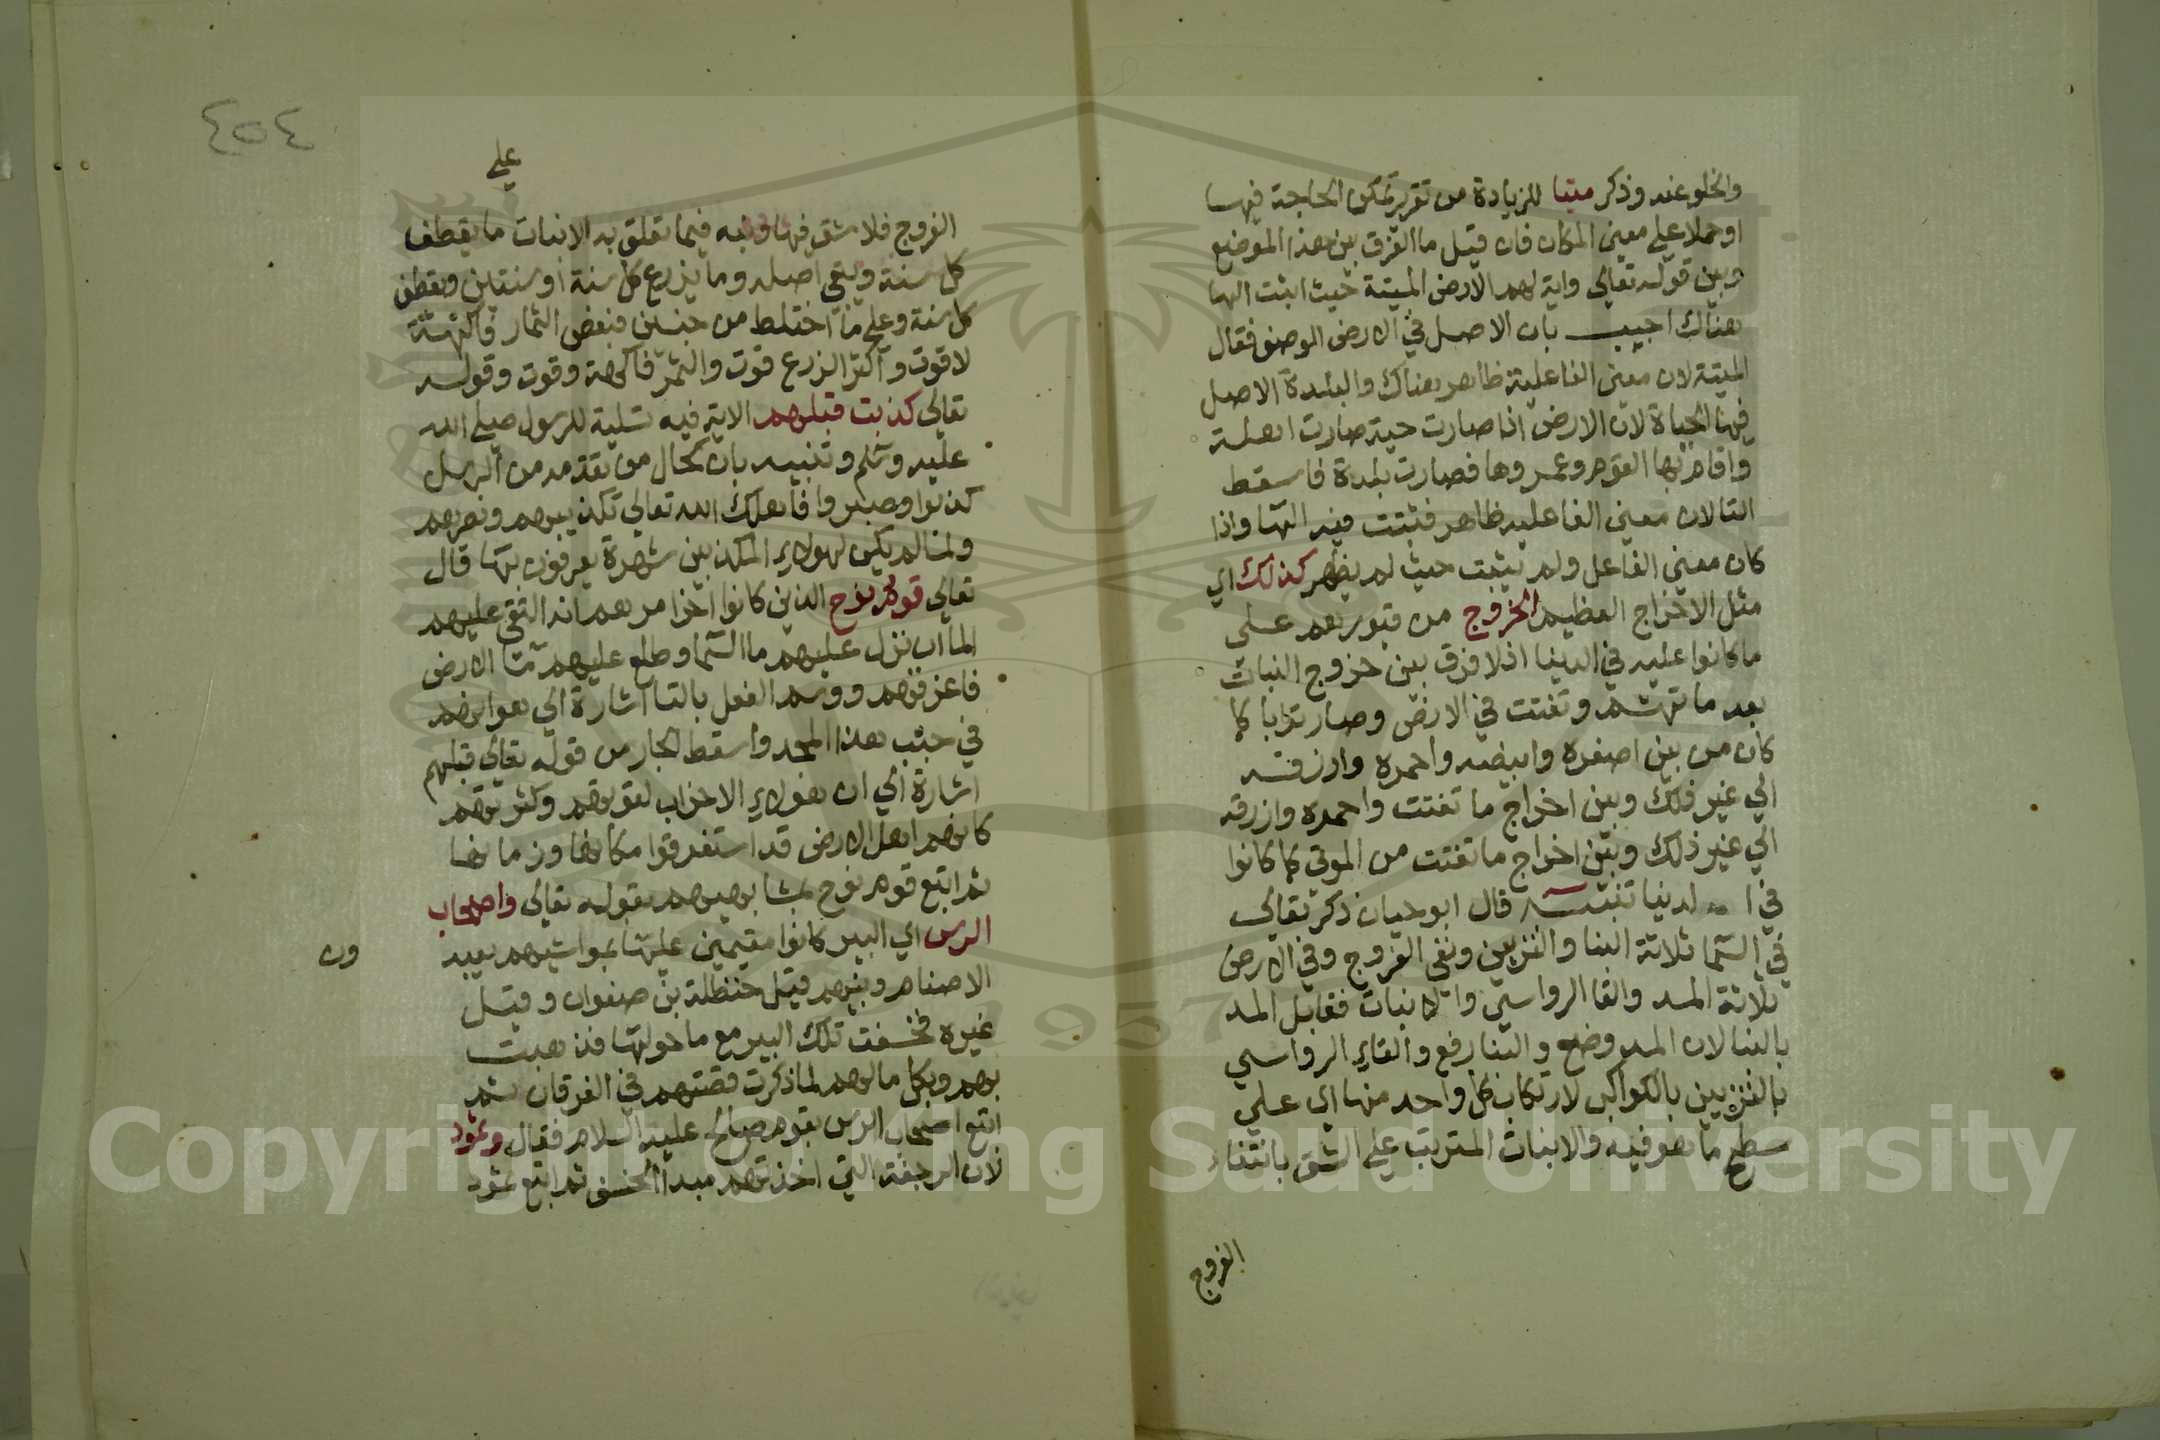 والخلو عنه وذكر ميتا للزيادة من تقرير تمكن الحاجة فيها
او حملا على معنى المكان فان قيل ما الفرق بين هذا الموضع
وبين قوله تعالى واية لهم الارض الميتة حيث اثبت الها
هناك اجيب بان الاصل في الارض الوصف فقال
الميتة لان معنى الفاعلية ظاهر هناك والبلدة الاصل
فيها الحياة لان الارض اذا صارت حية صارت اهلة
واقام بها القوم وعمروها فصارت بلدة فاسقط
التا لان معنى الفاعلية ظاهر فثبتت فيه الها واذا
كان معنى الفاعل ولم يثبت حيث لم يظهر كذلك اي
مثل الاخراج العظيم الخروج من قبورهم على
ما كانوا عليه في الدنيا اذ لا فرق بين خروج النبات
بعد ما تهشم وتفتت في الارض وصار ترابا كما
كان من بين اصفره وابيضه واحمره وازرقه
الي غير ذلك وبين اخراج ما تفتت واحمره وازرقه
الي غير ذلك وبين اخراج ما تفتت من الموتى كما كانوا
في الدنيا تنبيه قال ابو حيان ذكر تعالى
في السما ثلاثة البنا والتزيين ونفي الفروج وفي الارض
ثلاثة المد والقا الرواسي والانبات فقابل المد
بالبنا لان المد وضع والبنا رفع والقاء الرواسي
بالتزيين بالكواكب لارتكاب كل واحد منها اي على
سطح ما هو فيه والانبات المترتب على الشق بانتفاء
الفروج
٤٥٤
علي
الفروج فلا شق فيها ونبه فيما تعلق به الانبات ما يقطف
كل سنة ويبقى اصله وما يزرع كل سنة او سنتين ويقطف
كل سنة وعلى ما اختلط من جنسين فبعض الثمار فاكهة
لا قوت واكثر الزرع قوت والثمر فاكهة وقوت وقوله
تعالى كذبت قبلهم الاية فيه تسلية للرسول صلى الله
عليه وسلم وتنبيه بان كحال من تقدمه من الرسل
كذبوا وصبروا فاهلك الله تعالى تكذيبهم ونصرهم
ولما لم يكن لهولاء المكذبين شهرة يعرفون بها قال
تعالى قوم نوح الذين كانوا اخر امرهم انه التقى عليهم
الماان نزل عليهم ما السما وطلع عليهم ما الارض
فاغرقهم ووسم الفعل بالتا اشارة الي هوانهم
في جنب هذا المجد واسقط الجار من قوله تعالى قبلهم
اشارة الي ان هولاء الاحزاب لقوتهم وكثرتهم
كانهم اهل الارض قد استغرقوا مكانها وزمانها
ثم اتبع قوم نوح بمشابهيهم بقوله تعالى واصحاب
الرس اي البير كانوا مقيمين عليها بمواشيهم يعبد
ون
الاصنام ونبيهم قيل حنظلة بن صفوان وقيل
غيره فخسفت تلك البير مع ما حولها فذهبت
بهم وبكل مالهم كما ذكرت قصتهم في الفرقان ثم
اتبع اصحاب الرس بقوم صالح عليه السلام فقال وثمود
لان الرجفة التي اخذتهم مبدا الخسف ثم اتبع ثمود
Copyright © King Saud University
1957